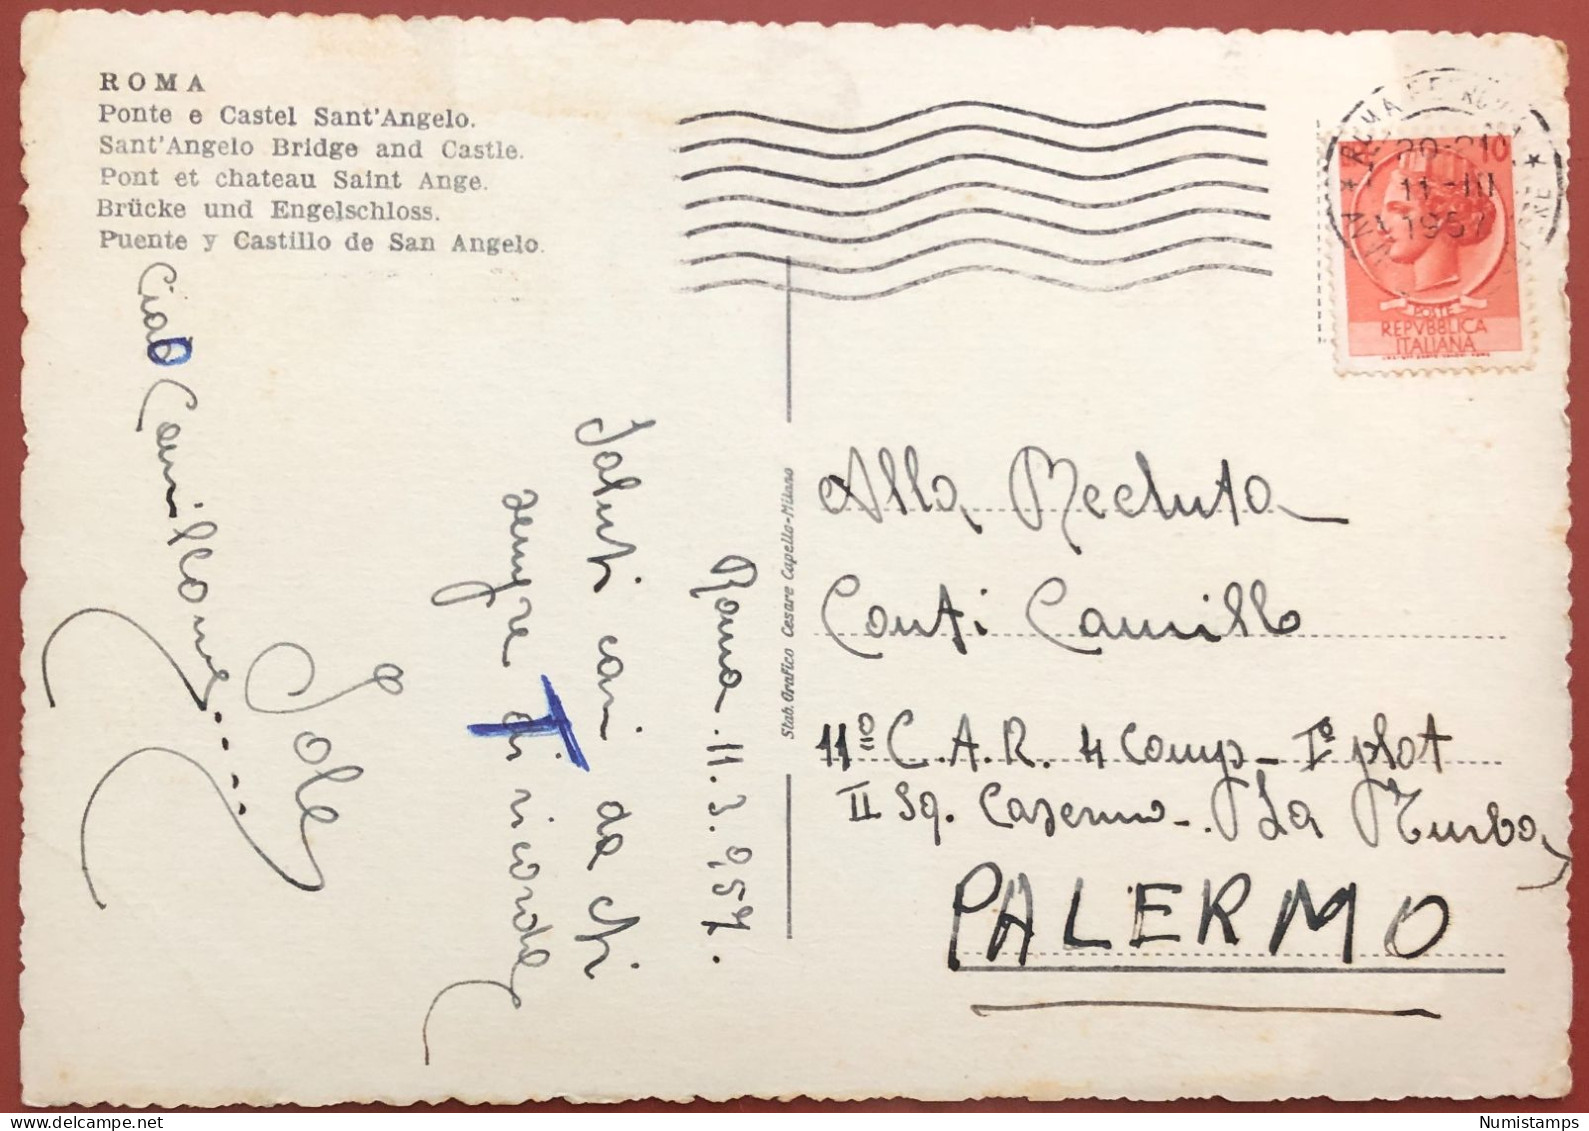 ROMA
Ponte e Castel Sant'Angelo.
Sant'Angelo Bridge and Castle.
Pont et chateau Saint Ange.
Brücke und Engelschloss.
Puente y Castillo de San Angelo.
Roma 11.3.957.
Saluti cari da chi
sempre ti ricorda
Sole
Ciao Camillone....
Stab. Grafico Cesare Capello-Milano
ROMA FERROVIA
20-21
11-III
1957
10
POSTE
REPVBBLICA
ITALIANA
Alla Recluta
Conti Camillo
11º C.A.R. 4 Comp- Iº plot
II Sq. Caserma-. La Turba
PALERMO
Numistamps